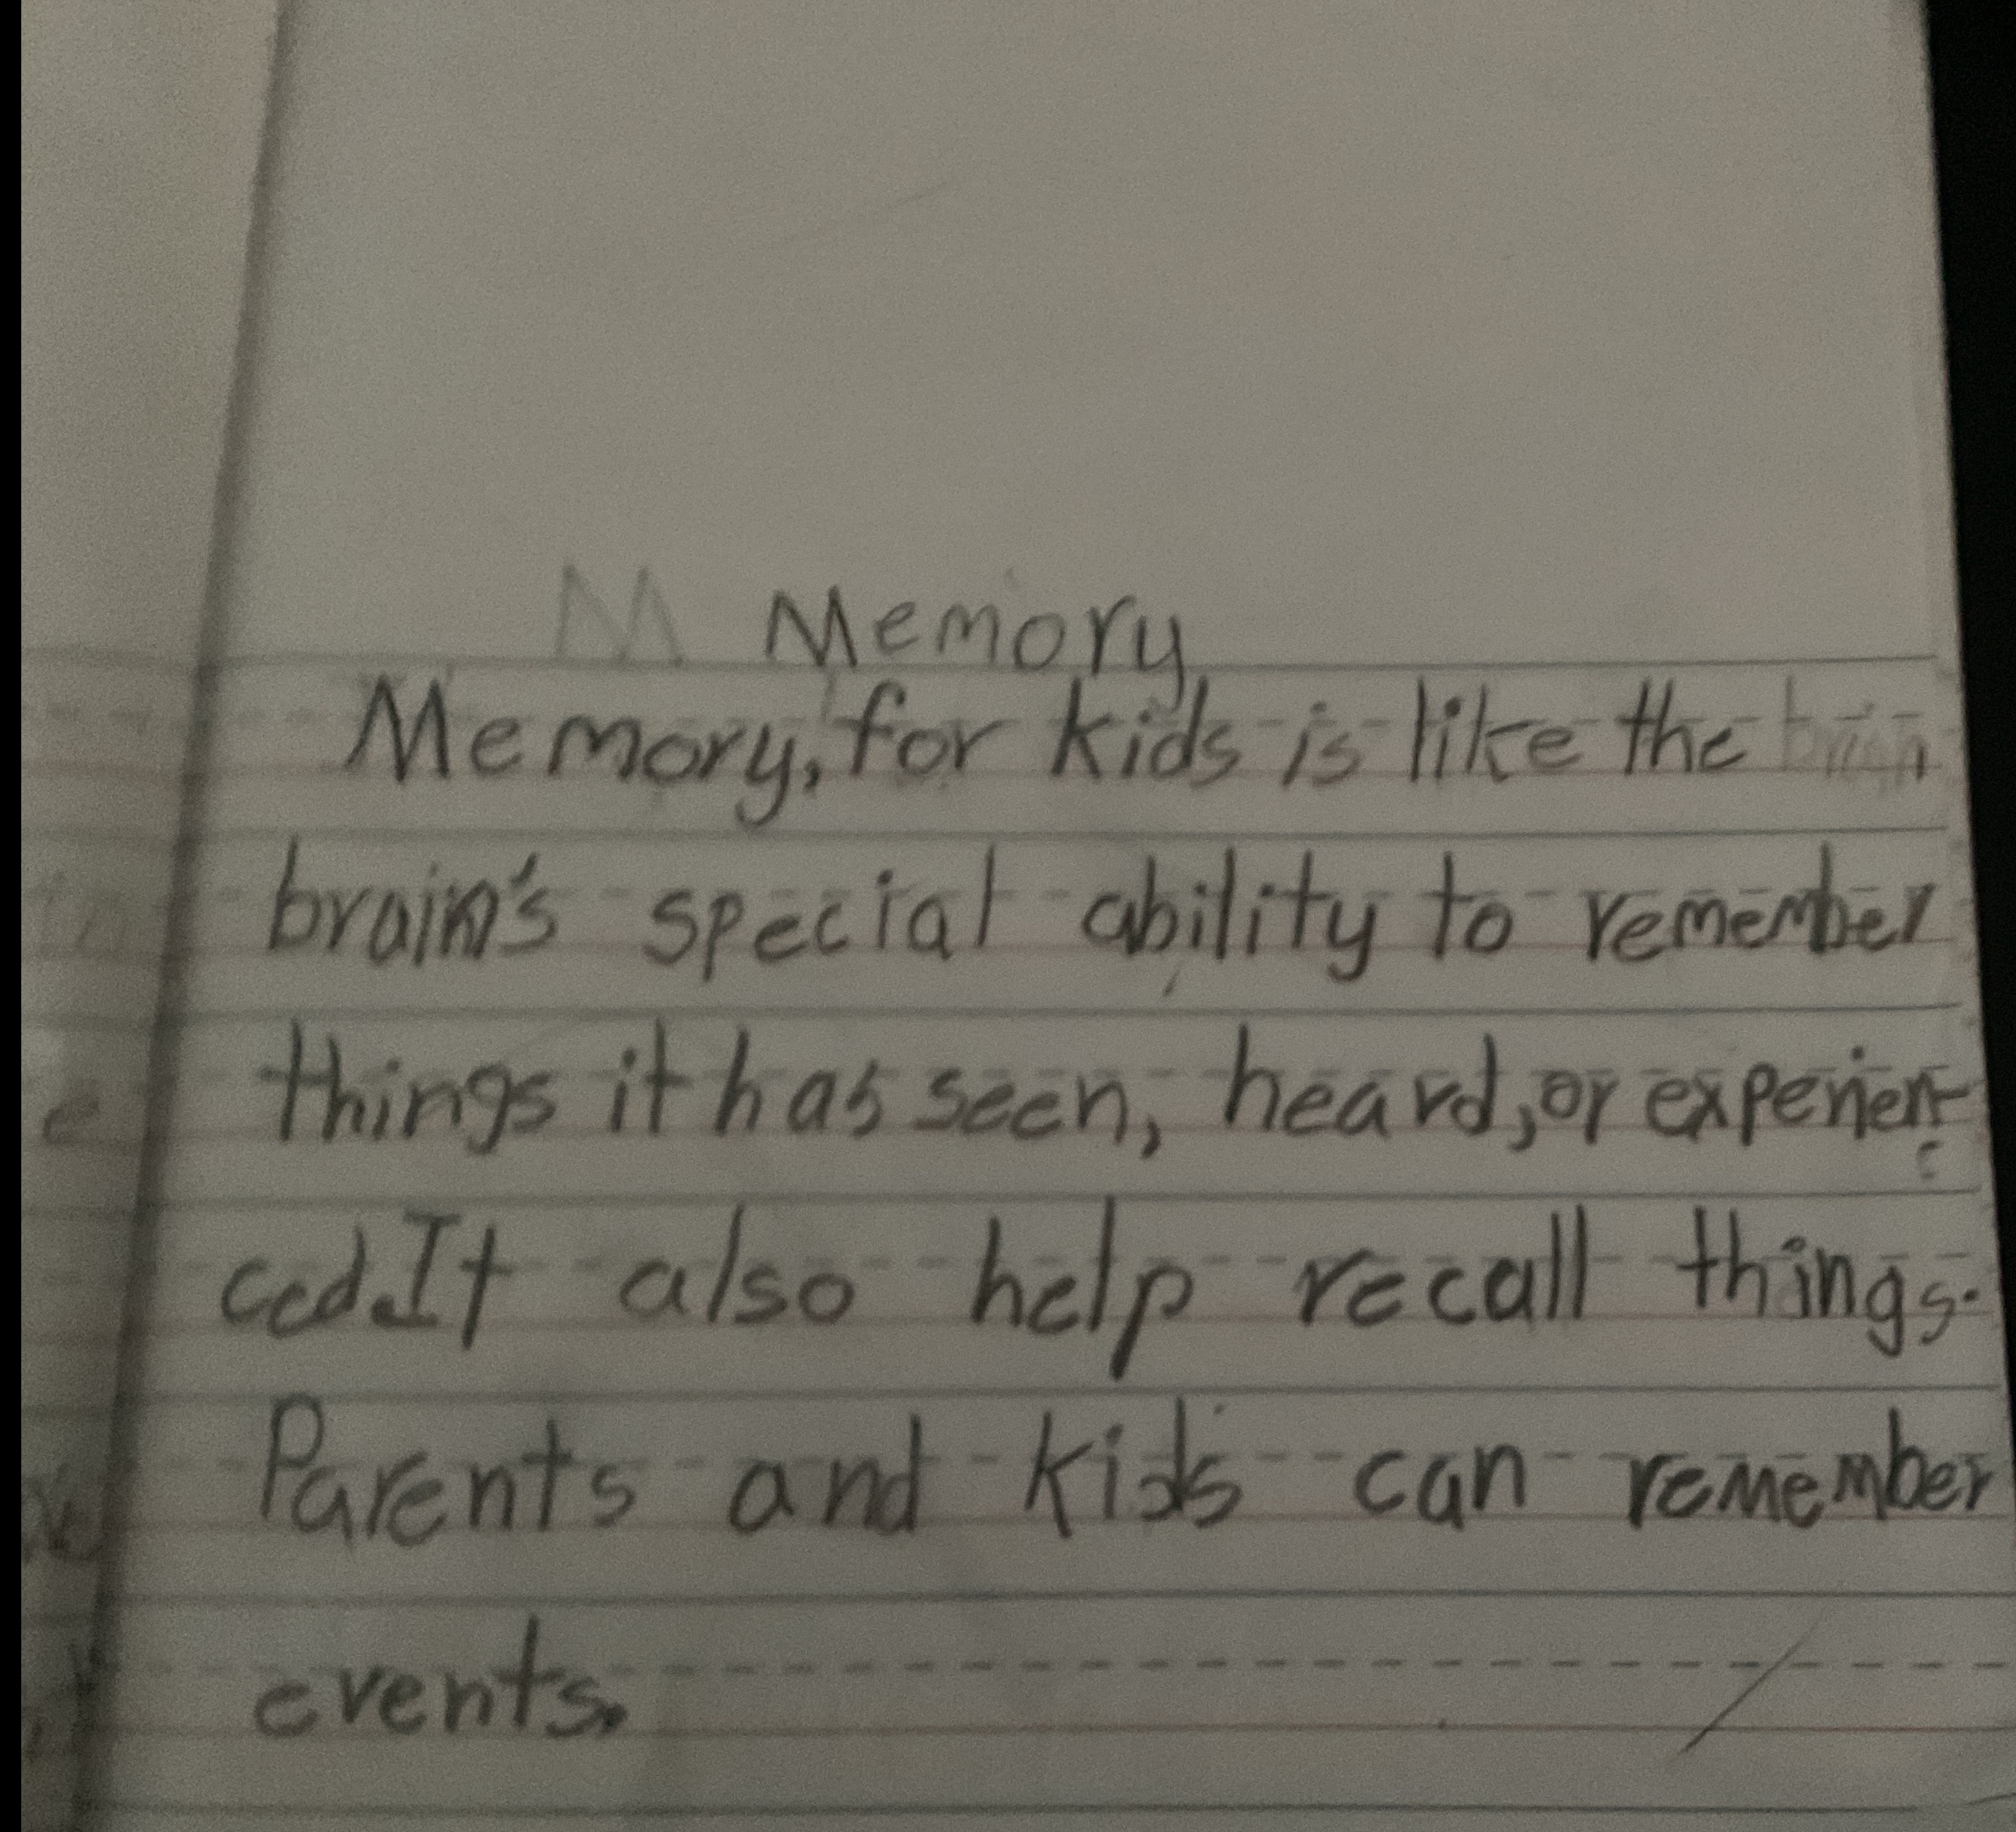 Memory
Memory, for kids is like the
brain's special ability to remember
things it has seen, heard, or experien-
ced. It also help recall things.
Parents and kids can remember
events.